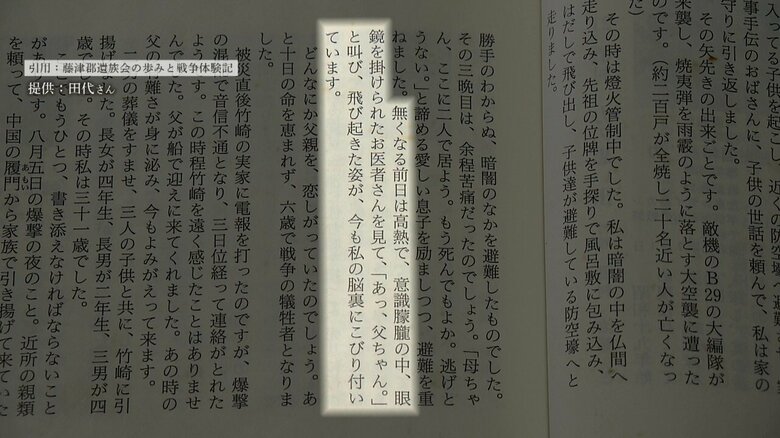 引用:藤津郡遺族会の歩みと戦争体験記
提供:田代さん
事手伝のおばさんに、子供の世話を頼んで、私は家の
守りに引き返しました。
その矢先の出来ごとです。敵機のB29の大編隊が
来襲し、焼夷弾を雨霰のように落とす大空襲に遭った
のです。(約二百戸が全焼し二十名近い人が亡くなっ
た)
その時は燈火管制中でした。私は暗闇の中を仏間へ
走り込み、先祖の位牌を手探りで風呂敷に包み込み、
はだしで飛び出し、子供達が避難している防空壕へと
走りました。
勝手のわからぬ、暗闇のなかを避難したものでした。
その三晩目は、余程苦痛だったのでしょう。「母ちゃ
ん、ここに二人で居よう。もう死んでもよか。逃げと
うない。」と諦める愛しい息子を励ましつつ、避難を重
ねました。無くなる前日は高熱で、意識朦朧の中、眼
鏡を掛けられたお医者さんを見て、「あっ、父ちゃん。」
と叫び、飛び起きた姿が、今も私の脳裏にこびり付い
ています。
どんなにか父親を、恋しがっていたのでしょう。あ
と十日の命を恵まれず、六歳で戦争の犠牲者となりま
した。
被災直後竹崎の実家に電報を打ったのですが、爆撃
の混乱で音信不通となり、三日位経って連絡がとれた
ようです。この時程竹崎を遠く感じたことはありませ
んでした。父が船で迎えに来てくれました。あの時の
父の有難さが身に泌み、今もよみがえって来ます。
の葬儀をすませ、三人の子供と共に、竹崎に引
揚げました。長女が四年生、長男が二年生、三男が四
歳でした。その時私は三十一歳でした。
もうひとつ、書き添えなければならないこと
があります。八月五日の爆撃の夜のこと。近所の親類
を頼って、中国の厦門から家族で引き揚げて来てい